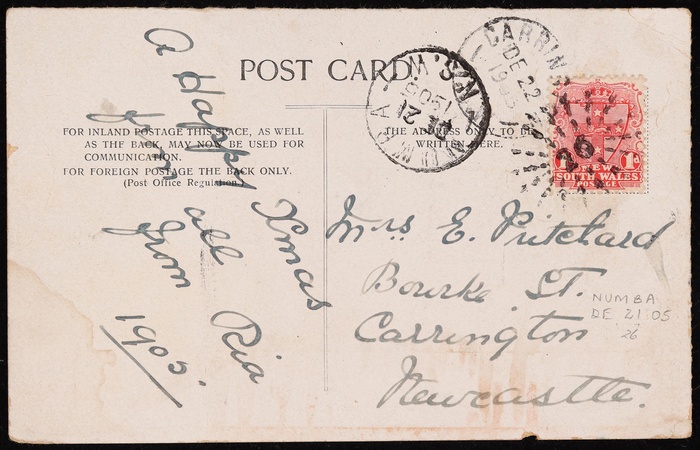 POST CARD
FOR INLAND POSTAGE THIS SPACE, AS WELL
AS THE BACK, MAY NOW BE USED FOR
COMMUNICATION.
FOR FOREIGN POSTAGE THE BACK ONLY.
(Post Office Regulation.)
THE ADDRESS ONLY TO BE
WRITTEN HERE.
A Happy Xmas
from all
from Ria
1905.
Mrs E. Pritchard
Bourke St.
Carrington
Newcastle.
NUMBA
DE 21 05
26
NUMBA
N.S.W
DE 21
1905
CARRIN
DE 22
1905
26
1d
NEW
SOUTH WALES
POSTAGE